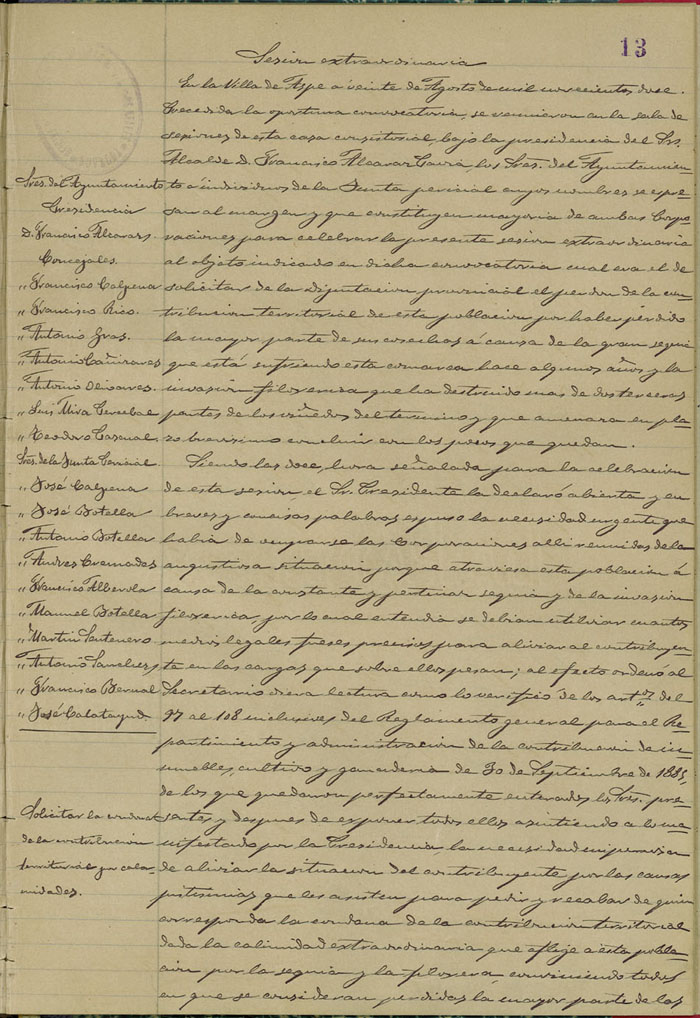 13
Sesion extraordinaria
En la Villa de Aspe a veinte de Agosto de mil novecientos doce.
Precedida la oportuna convocatoria, se reunieron en la sala de
sesiones de esta casa consistorial, bajo la presidencia del Sr.
Alcalde D. Francisco Alcaraz los Sres. del Ayuntamien
to é individuos de la Junta pericial cuyos nombres se expre-
san al margen y que constituyen mayoria de ambas Corpo-
raciones para celebrar la presente sesion extraordinaria
al objeto indicado en dicha convocatoria cual era el de
solicitar de la diputacion provincial el perdon de la con
tribucion territorial de esta poblacion por haber perdido
la mayor parte de sus cosechas á causa de la gran sequia
que está sufriendo esta comarca hace algunos años y la
invasion filoxerica que ha destruido mas de dos terceras
partes de los viñedos del termino y que amenaza en pla-
zo brevisimo concluir con los pocos que quedan.
Siendo las doce, hora señalada para la celebracion
de esta sesion el Sr. Presidente la declaró abierta y en
breves y concisas palabras expuso la necesidad urgente que
habia de ocuparse las Corporaciones alli reunidas de la
angustiosa situacion porque atraviesa esta poblacion á
causa de la constante y pertinaz sequia y de la invasion
filoxerica, por lo cual entendia se debian utilizar cuantos
medios legales fuesen precisos para aliviar al contribuyen-
te en las cargas que sobre ellos pesan; al efecto ordenó al
Secretario diera lectura como lo verificó de los artos del
97 al 108 inclusives del Reglamento general para el Re-
partimiento y administracion de la contribucion de in-
muebles, cultivo y ganaderia de 30 de Septiembre de 1885,
de los que quedaron perfectamente enterados los Sres. pre-
sentes y despues de exponer todos ellos asintiendo a lo ma-
nifestado por la Presidencia, la necesidad imperiosa
de aliviar la situacion del contribuyente por las causas
justisimas que les asisten para pedir y recabar de quien
corresponda la condona de la contribucion territorial
dada la calamidad extraordinaria que aflije a esta pobla-
cion por la sequia y la filoxera, conviniendo todos
en que se consideran perdidas la mayor parte de las
Sres. del Ayuntamiento
Presidencia
D. Francisco Alcaraz
Concejales.
" Francisco Calpena
" Francisco Rico.
" Antonio Gras.
" Antonio Cañizares
" Antonio Olivares.
" Luis Mira
" Teodoro Pascual
Sres. de la Junta Pericial
" José Calpena
" José Botella
" Antonio Botella
" Andres Cremades
" Francisco Alberola
" Manuel Botella
" Martin Santenero
" Antonio Sanchez
" Francisco Bernal
" José Calatayud
Solicitar la condona
de la contribucion
territorial por cala-
midades.